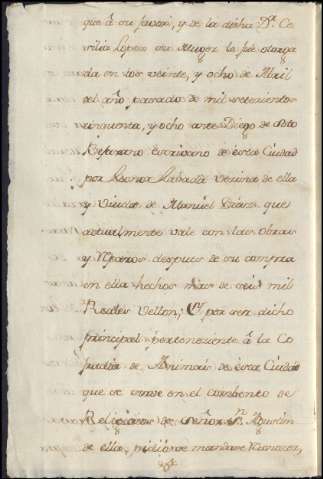 que á su favor, y de la dicha D.ª Ce
cilia Lopez su Muger le fue otorga
da en los veinte, y ocho de Abril
del año pasado de mil setecientos
cinquenta, y ocho ante Diego de Soto
Escrivano de esta Ciudad
por Leonor vecina de ella
y Viuda de Manuel que
actualmente vale con las obras
y reparos despues de su compra
en ella hechos mas de seis mil
Reales Vellon; y por ser dicho
principal perteneziente á la Co
fradia de Animas de esta Ciudad
que se sirve en el Combento de
Religiosos de Señor S.n Agustin
de ella, pidió se mandase